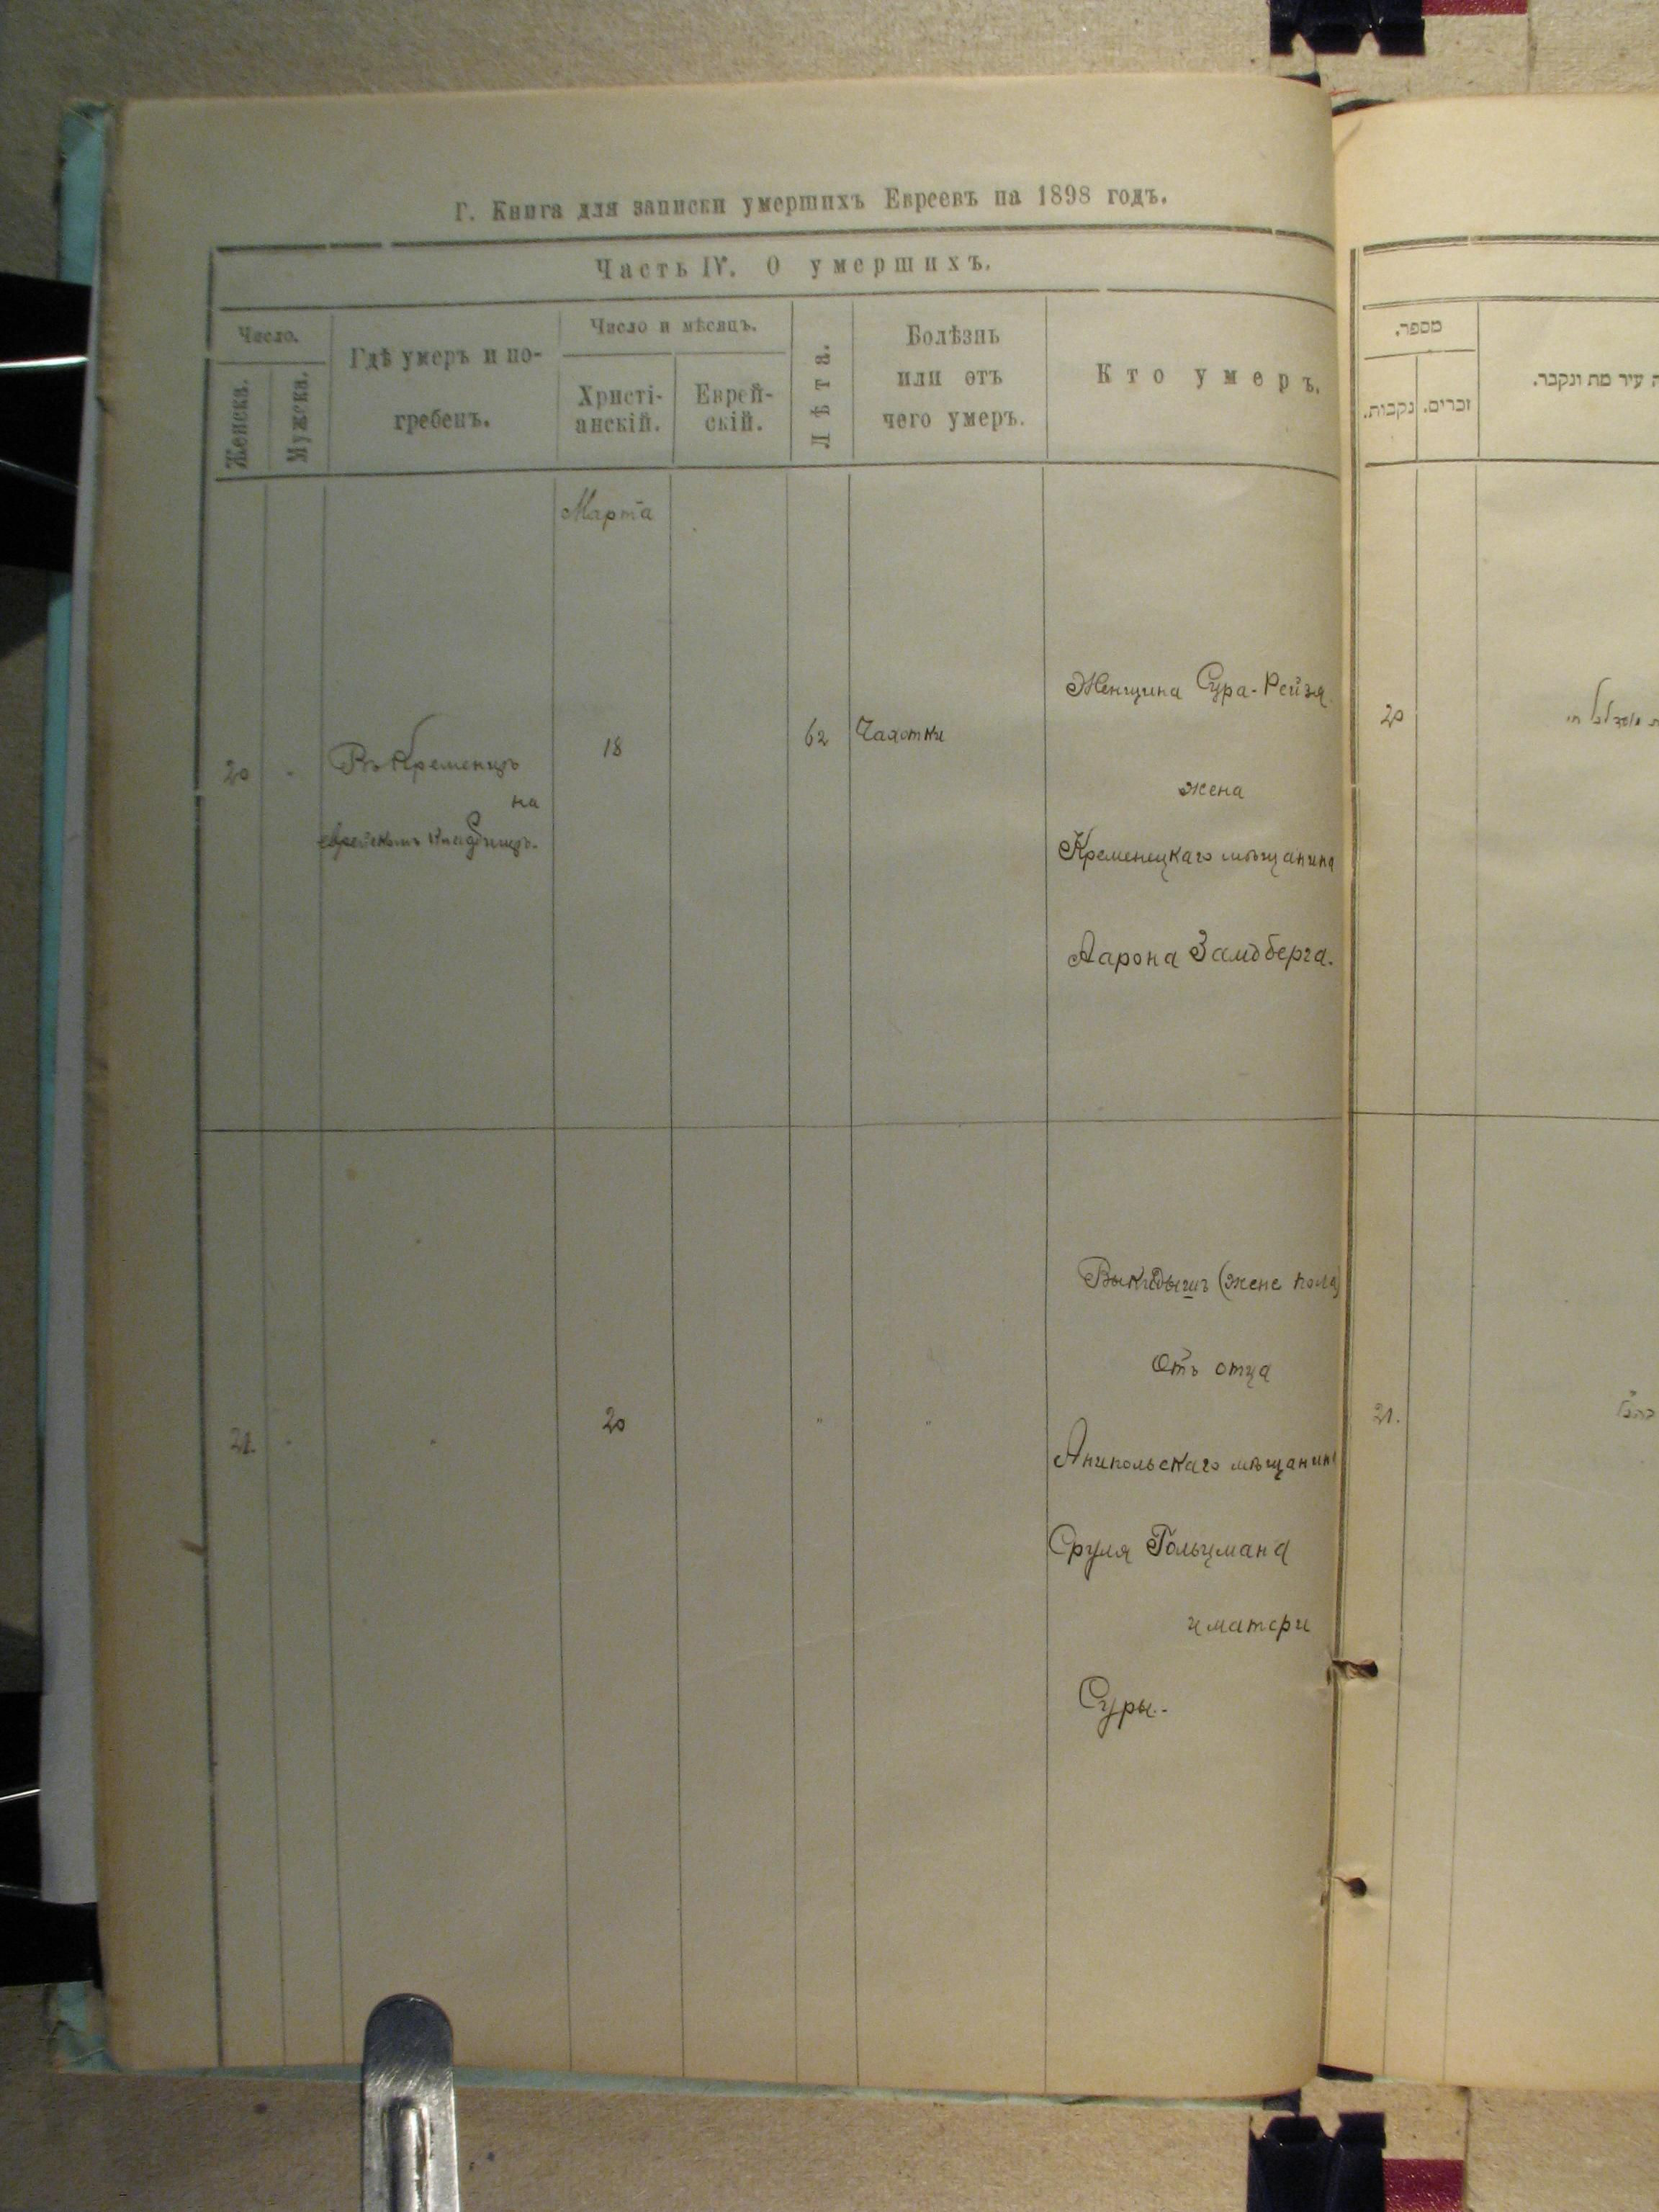 Г. Книга для записки умершихъ Евреевъ на 1898 годъ.
Часть IV. О умершихъ.
Число.
Женска.
Мужска.
Гдѣ умеръ и по-
гребенъ.
Число и мѣсяцъ.
Христі-
анскій.
Еврей-
скій.
Лѣта.
Болѣзнь
или отъ
чего умеръ.
Кто умеръ.
Марта
20
Въ Кременцѣ
на
еврейскомъ кладбищѣ.
18
62
Чахотки
Женщина Сура-Рейзя
жена
Кременецкаго мѣщанина
Аарона Замдберга.
21.
20
"
"
Выкидышъ (жене пола)
Отъ отца
Анипольскаго мѣщанина
Сруля Гольцмана
и матери
Суры.-
מספר.
נקבות.
זכרים.
עיר מת ונקבר.
20
21.